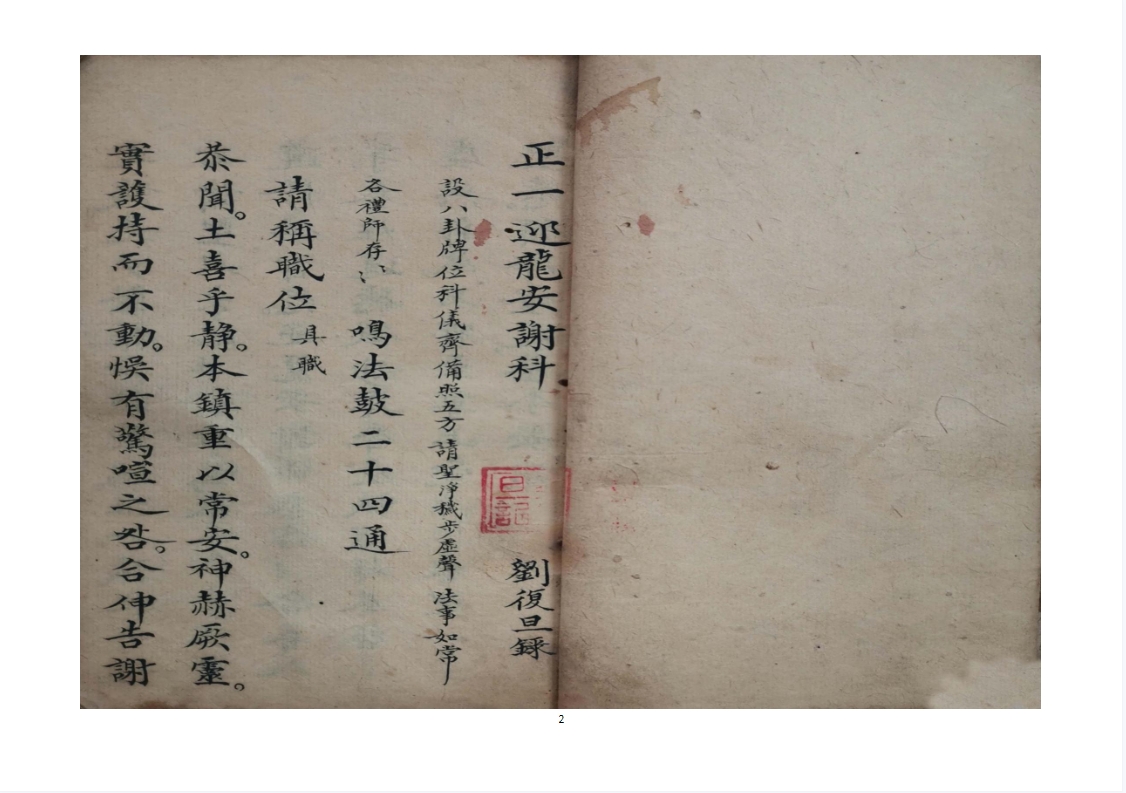 正一迎龍安謝科 劉復旦錄
設八卦牌位科儀齊備照五方請聖淨穢步虛聲 法事如常
各禮師存〻 鳴法鼓二十四通
請稱職位 具職
恭聞。土喜乎靜。本鎮重以常安。神赫厥靈。
實護持而不動。悞有驚喧之咎。合伸告謝
2